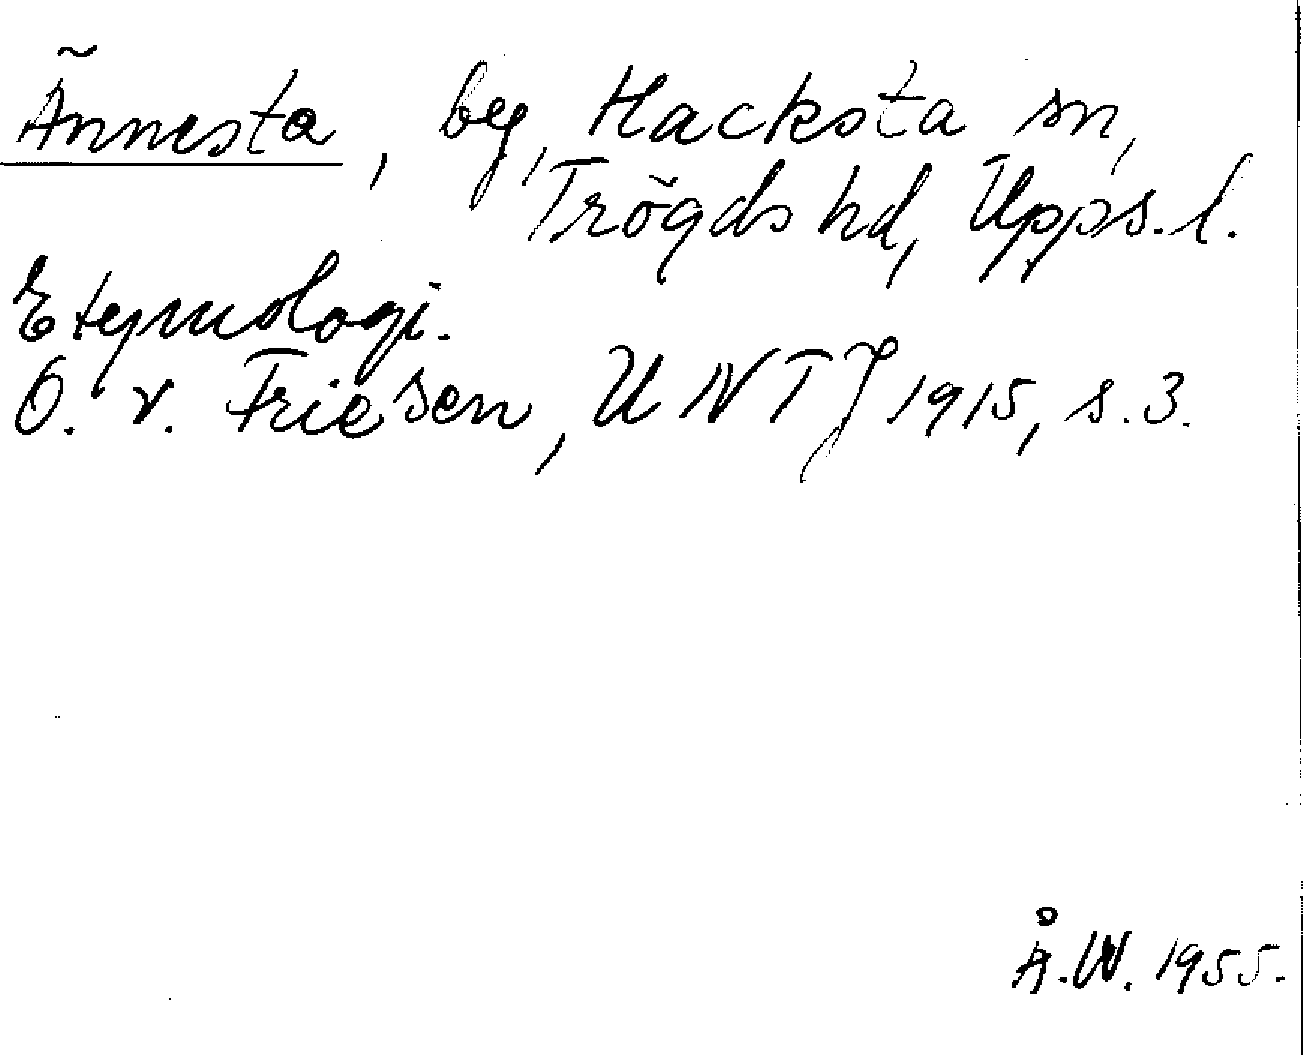 Ännesta, by, Hacksta sn,
Trögds hd, Upps. l.
Etymologi.
O. v. Friesen, UNTJ 1915, s. 3.
Å. W. 1955.